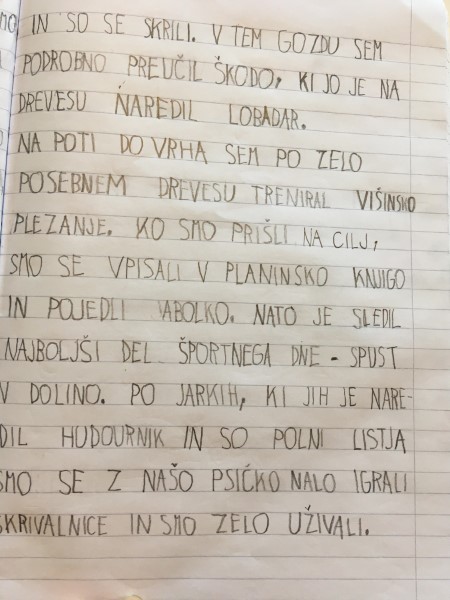 MO IN SO SE SKRILI. V TEM GOZDU SEM
PODROBNO PREUČIL ŠKODO, KI JO JE NA
DREVESU NAREDIL LOBADAR.
NA POTI DO VRHA SEM PO ZELO
POSEBNEM DREVESU TRENIRAL VIŠINSKO
PLEZANJE. KO SMO PRIŠLI NA CILJ,
SMO SE VPISALI V PLANINSKO KNJIGO
IN POJEDLI JABOLKO. NATO JE SLEDIL
NAJBOLJŠI DEL ŠPORTNEGA DNE - SPUST
V DOLINO. PO JARKIH, KI JIH JE NARE-
DIL HUDOURNIK IN SO POLNI LISTJA
SMO SE Z NAŠO PSIČKO NALO IGRALI
SKRIVALNICE IN SMO ZELO UŽIVALI.